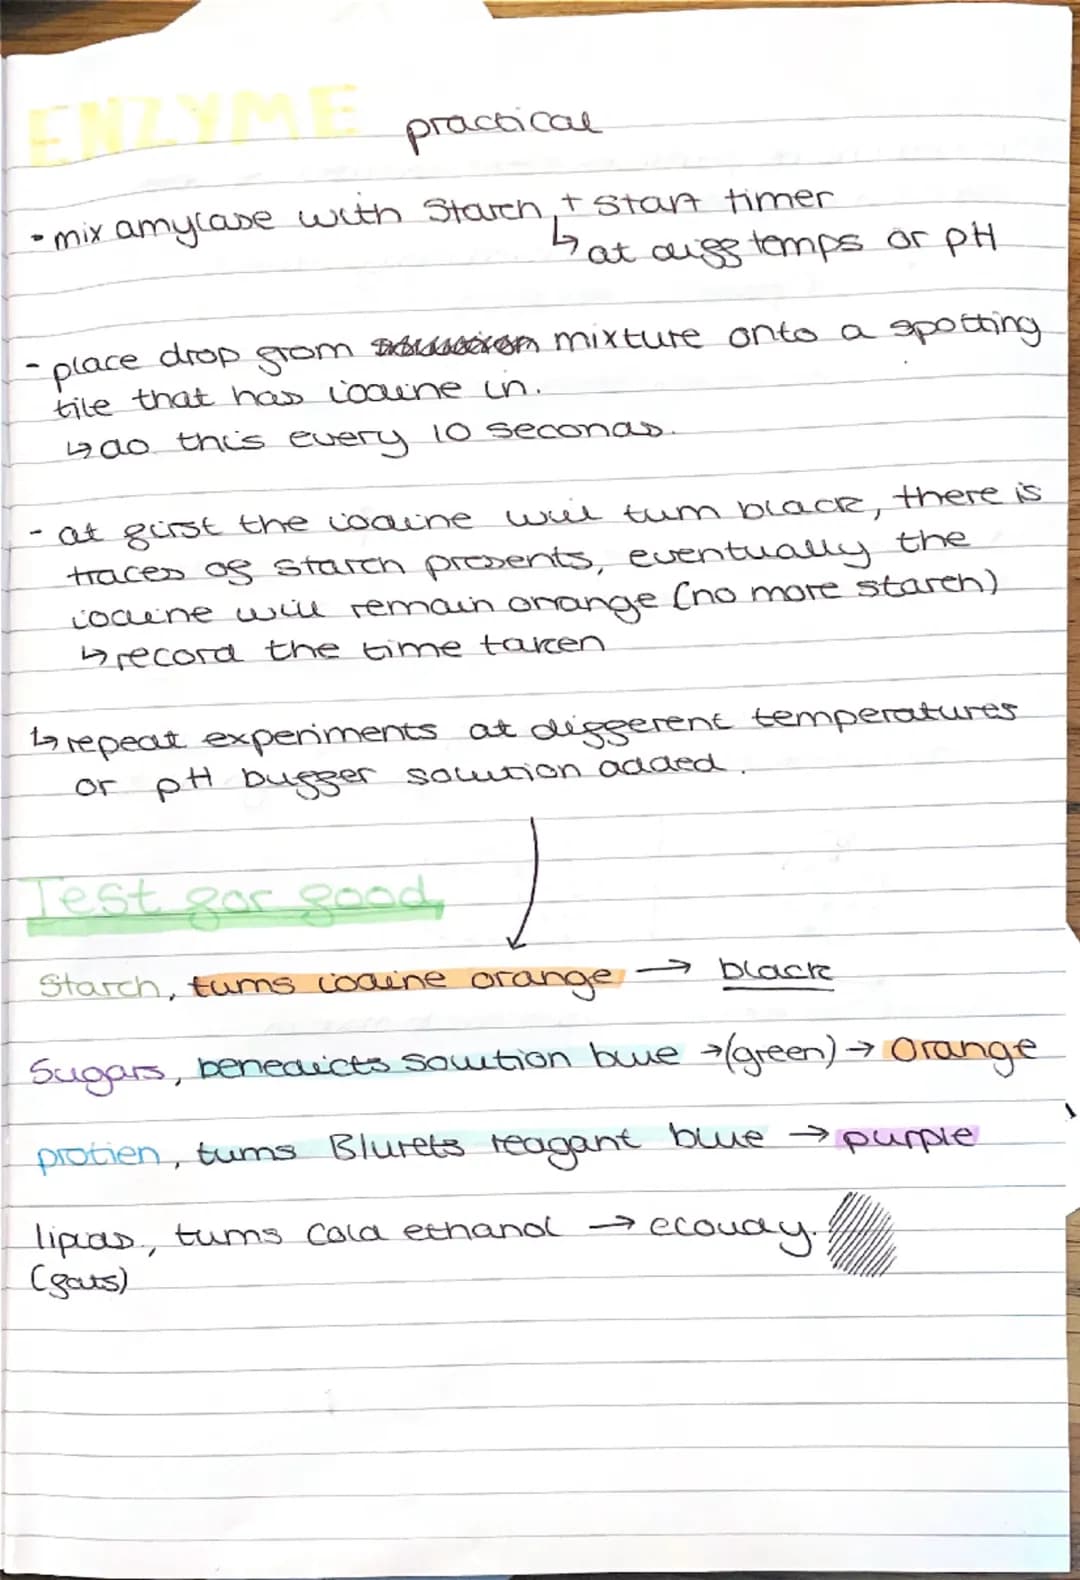 ENZYME practical
• mix amylase with Starch, + start timer
↳ at diff temps or pH
- place drop from mixture onto a spotting
tile that has iodine in.
↳ do this every 10 seconds.
- at first the iodine will turn black, there is
traces of starch presents, eventually the
iodine will remain orange (no more starch)
↳ record the time taken
↳ repeat experiments at different temperatures
or pH buffer solution added.
Test for food
Starch, turns iodine orange → black
Sugars, benedicts solution blue → (green) → Orange
protien, turns Biurets reagant blue → purple
lipids, turns Cold ethanol → cloudy.
(fats)